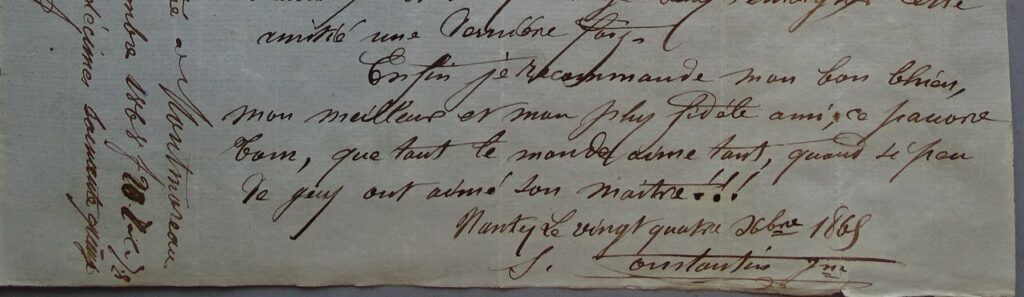 cette
amitié une dernière fois.
Enfin je recommande mon bon chien,
mon meilleur et mon plus fidèle ami, ce pauvre
Tom, que tout le monde aime tant, quand si peu
de gens ont aimé son maître!!!
Nantes le vingt quatre Xbre 1865
S. Constantin
à Montmoreau
mbre 1865
décimes soixante